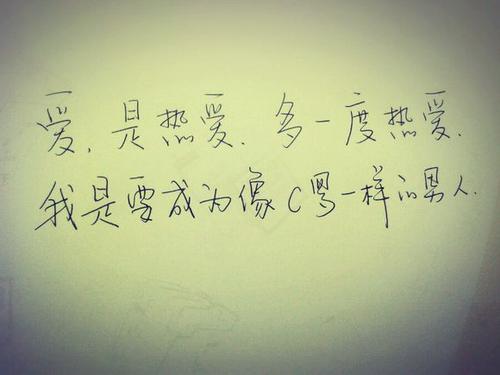 爱,是热爱.多一度热爱.
我是要成为像C罗一样的男人.